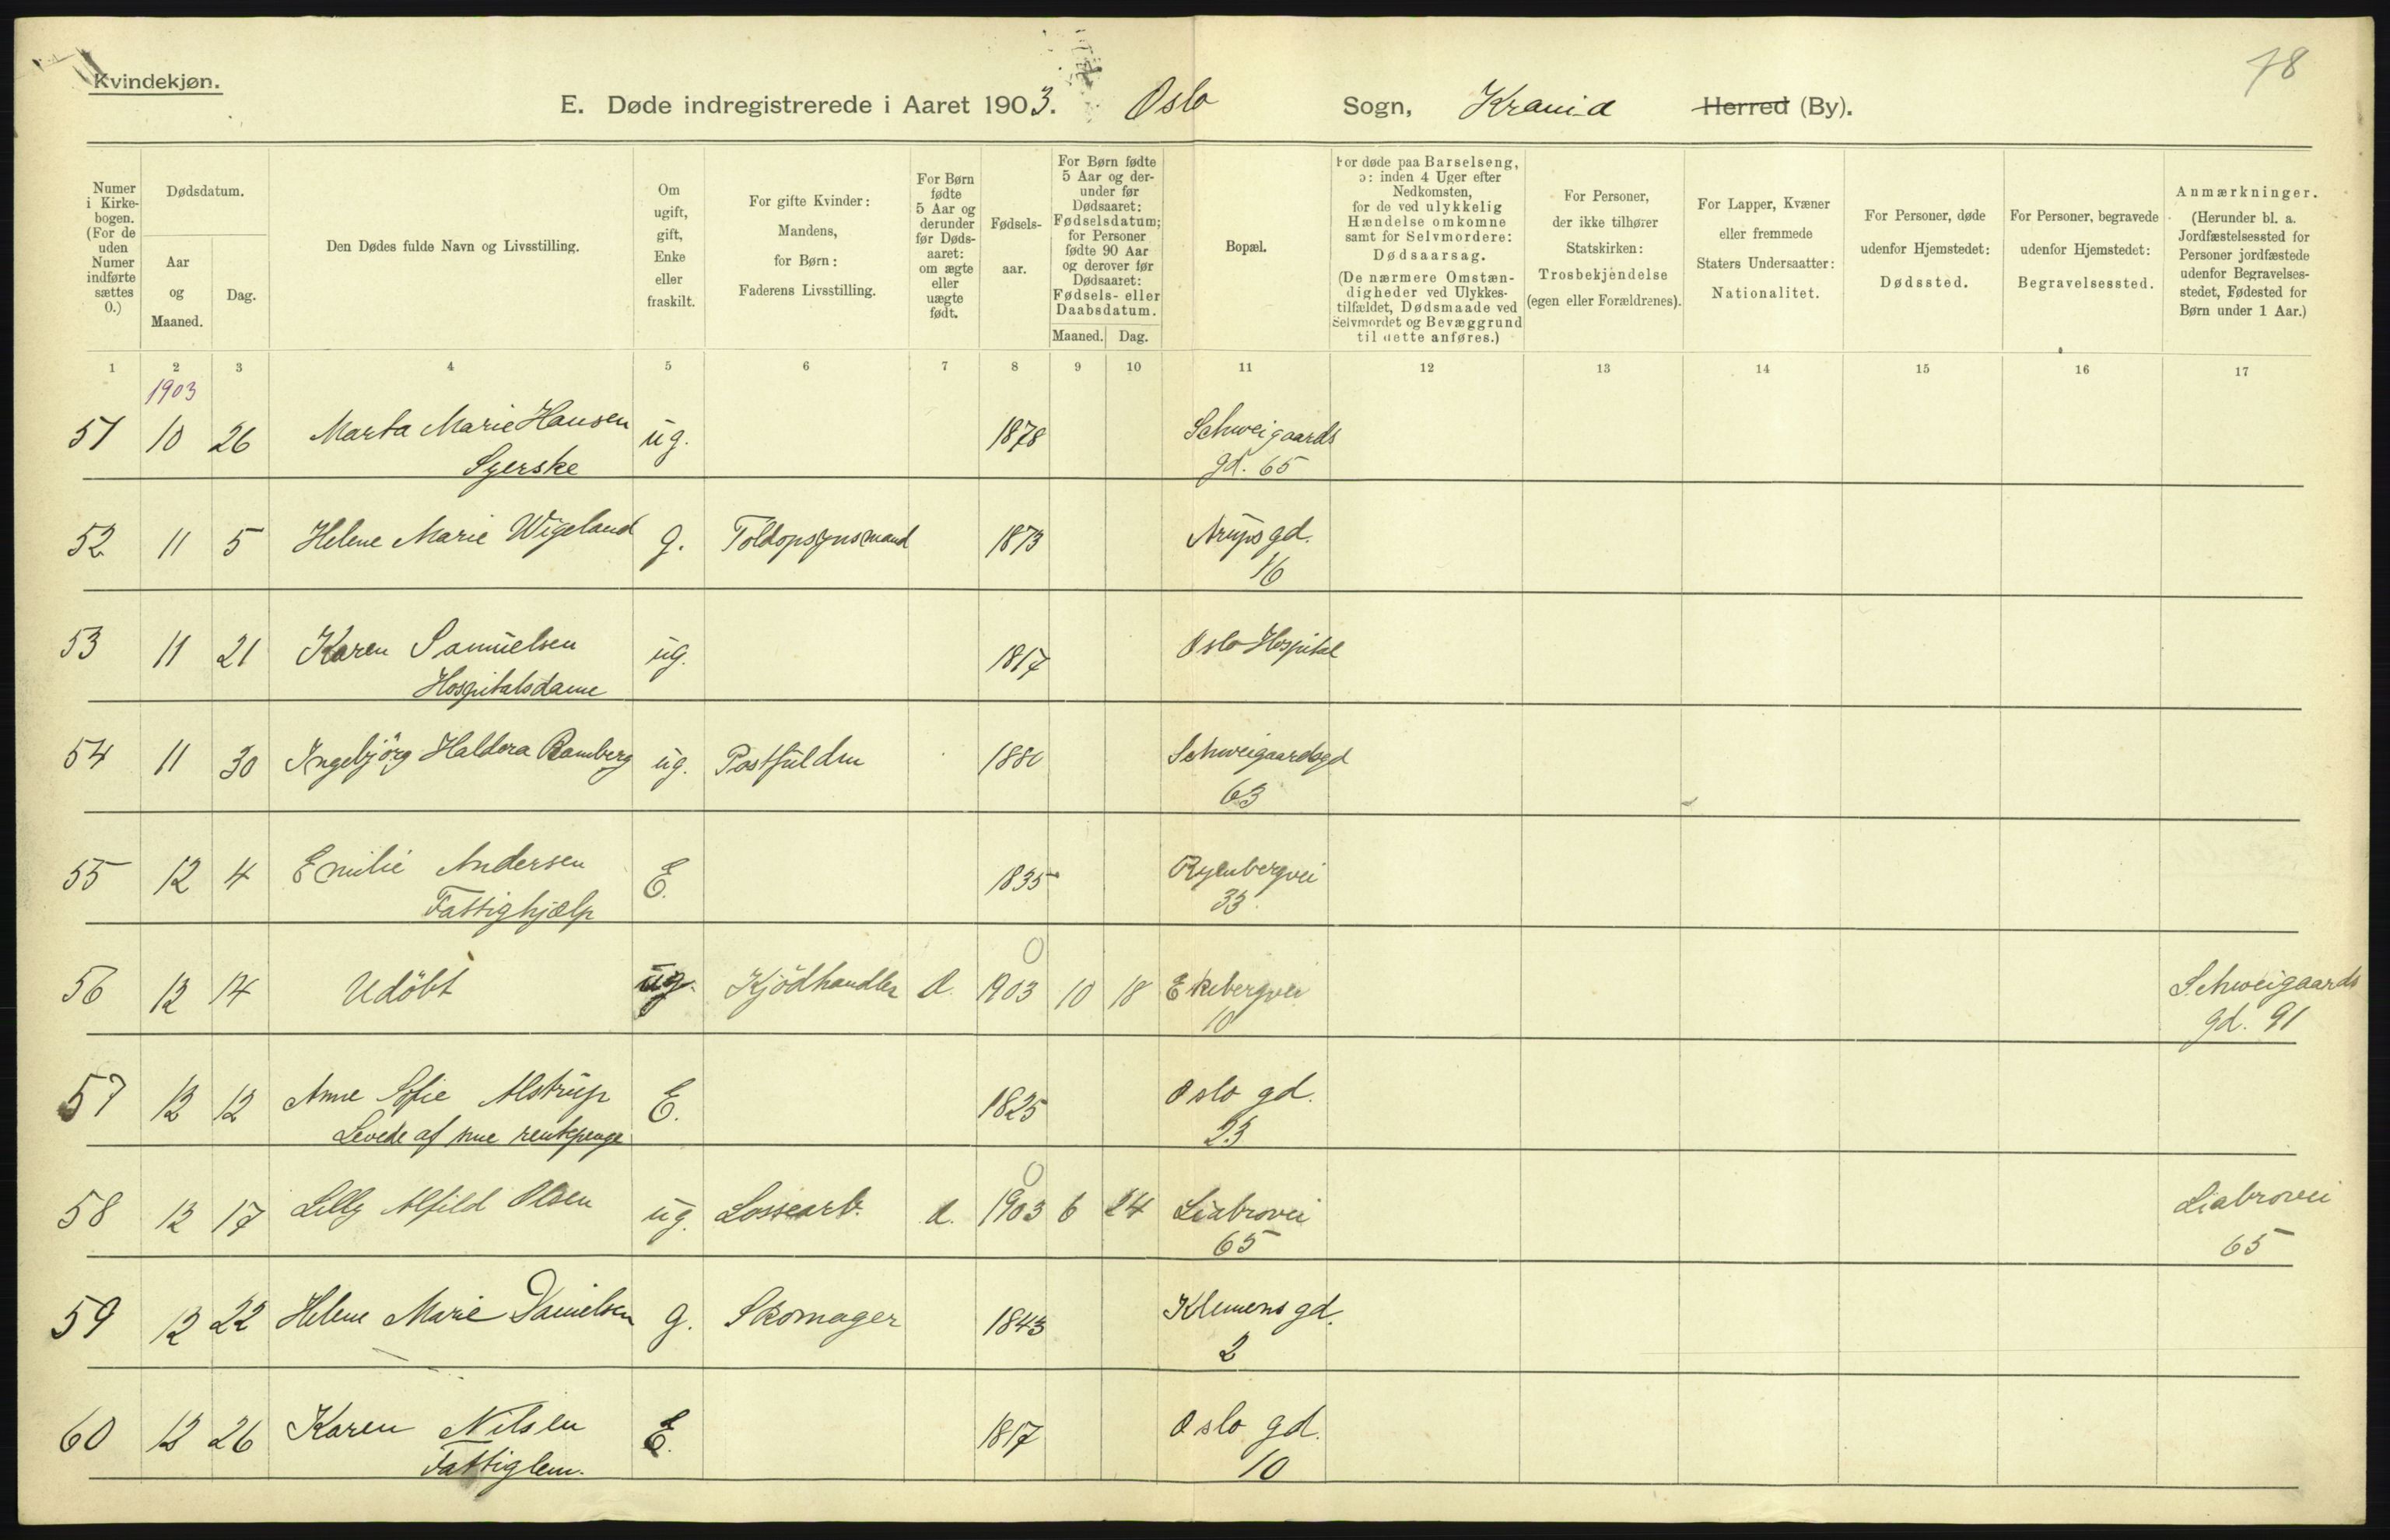 Kvindekjøn.
78
E. Døde indregistrerede i Aaret 1903. Oslo Sogn, Krania Herred (By).
Numer i Kirke-bogen. (For de uden Numer indførte sættes 0.)
Dødsdatum.
Aar og Maaned.
Dag.
Den Dødes fulde Navn og Livsstilling.
Om ugift, gift, Enke eller fraskilt.
For gifte Kvinder: Mandens, for Børn: Faderens Livsstilling.
For Børn fødte 5 Aar og derunder før Døds-aaret: om ægte eller uægte født.
Fødsels-aar.
For Børn fødte 5 Aar og der-under før Dødsaaret: Fødselsdatum; for Personer fødte 90 Aar og derover før Dødsaaret: Fødsels- eller Daabsdatum.
Maaned. Dag.
Bopæl.
For døde paa Barselseng, ɔ: inden 4 Uger efter Nedkomsten, for de ved ulykkelig Hændelse omkomne samt for Selvmordere: Dødsaarsag. (De nærmere Omstæn-digheder ved Ulykkes-tilfældet, Dødsmaade ved Selvmordet og Bevæggrund til dette anføres.)
For Personer, der ikke tilhører Statskirken: Trosbekjendelse (egen eller Forældrenes).
For Lapper, Kvæner eller fremmede Staters Undersaatter: Nationalitet.
For Personer, døde udenfor Hjemstedet: Dødssted.
For Personer, begravede udenfor Hjemstedet: Begravelsessted.
Anmærkninger. (Herunder bl. a. Jordfæstelsessted for Personer jordfæstede udenfor Begravelses-stedet, Fødested for Børn under 1 Aar.)
1 2 3 4 5 6 7 8 9 10 11 12 13 14 15 16 17
1903
51 10 26 Marta Marie Hansen ug. 1878 Schweigaards
Syerske gd. 65
52 11 5 Helene Marie Wigeland g. Toldopsynsmand 1873 Arups gd.
16
53 11 21 Karen Samuelsen ug. 1817 Oslo Hospital
Hospitalsdame
54 11 30 Ingebjörg Haldora Ramberg ug. Postfuldm 1880 Schweigaardsgd
63
55 12 4 Emilie Andersen E. 1835 Ryenbergvei
Fattighjælp 33
0
56 12 14 Udöbt ug. Kjödhandler 1903 10 18 Ekebergvei Schweigaards
10 gd. 91
57 12 12 Anne Sofie Alstrup E. 1825 Oslo gd.
Levede af sine rentepenge 23
0
58 12 17 Lilly Alfild Olsen ug. Lossearb. 1903 6 24 Liabrovei Liabrovei
65 65
59 12 22 Helene Marie Danielsen g. Skomager 1843 Klemens gd.
2
60 12 26 Karen Nilsen E. 1817 Oslo gd.
Fattiglem. 10